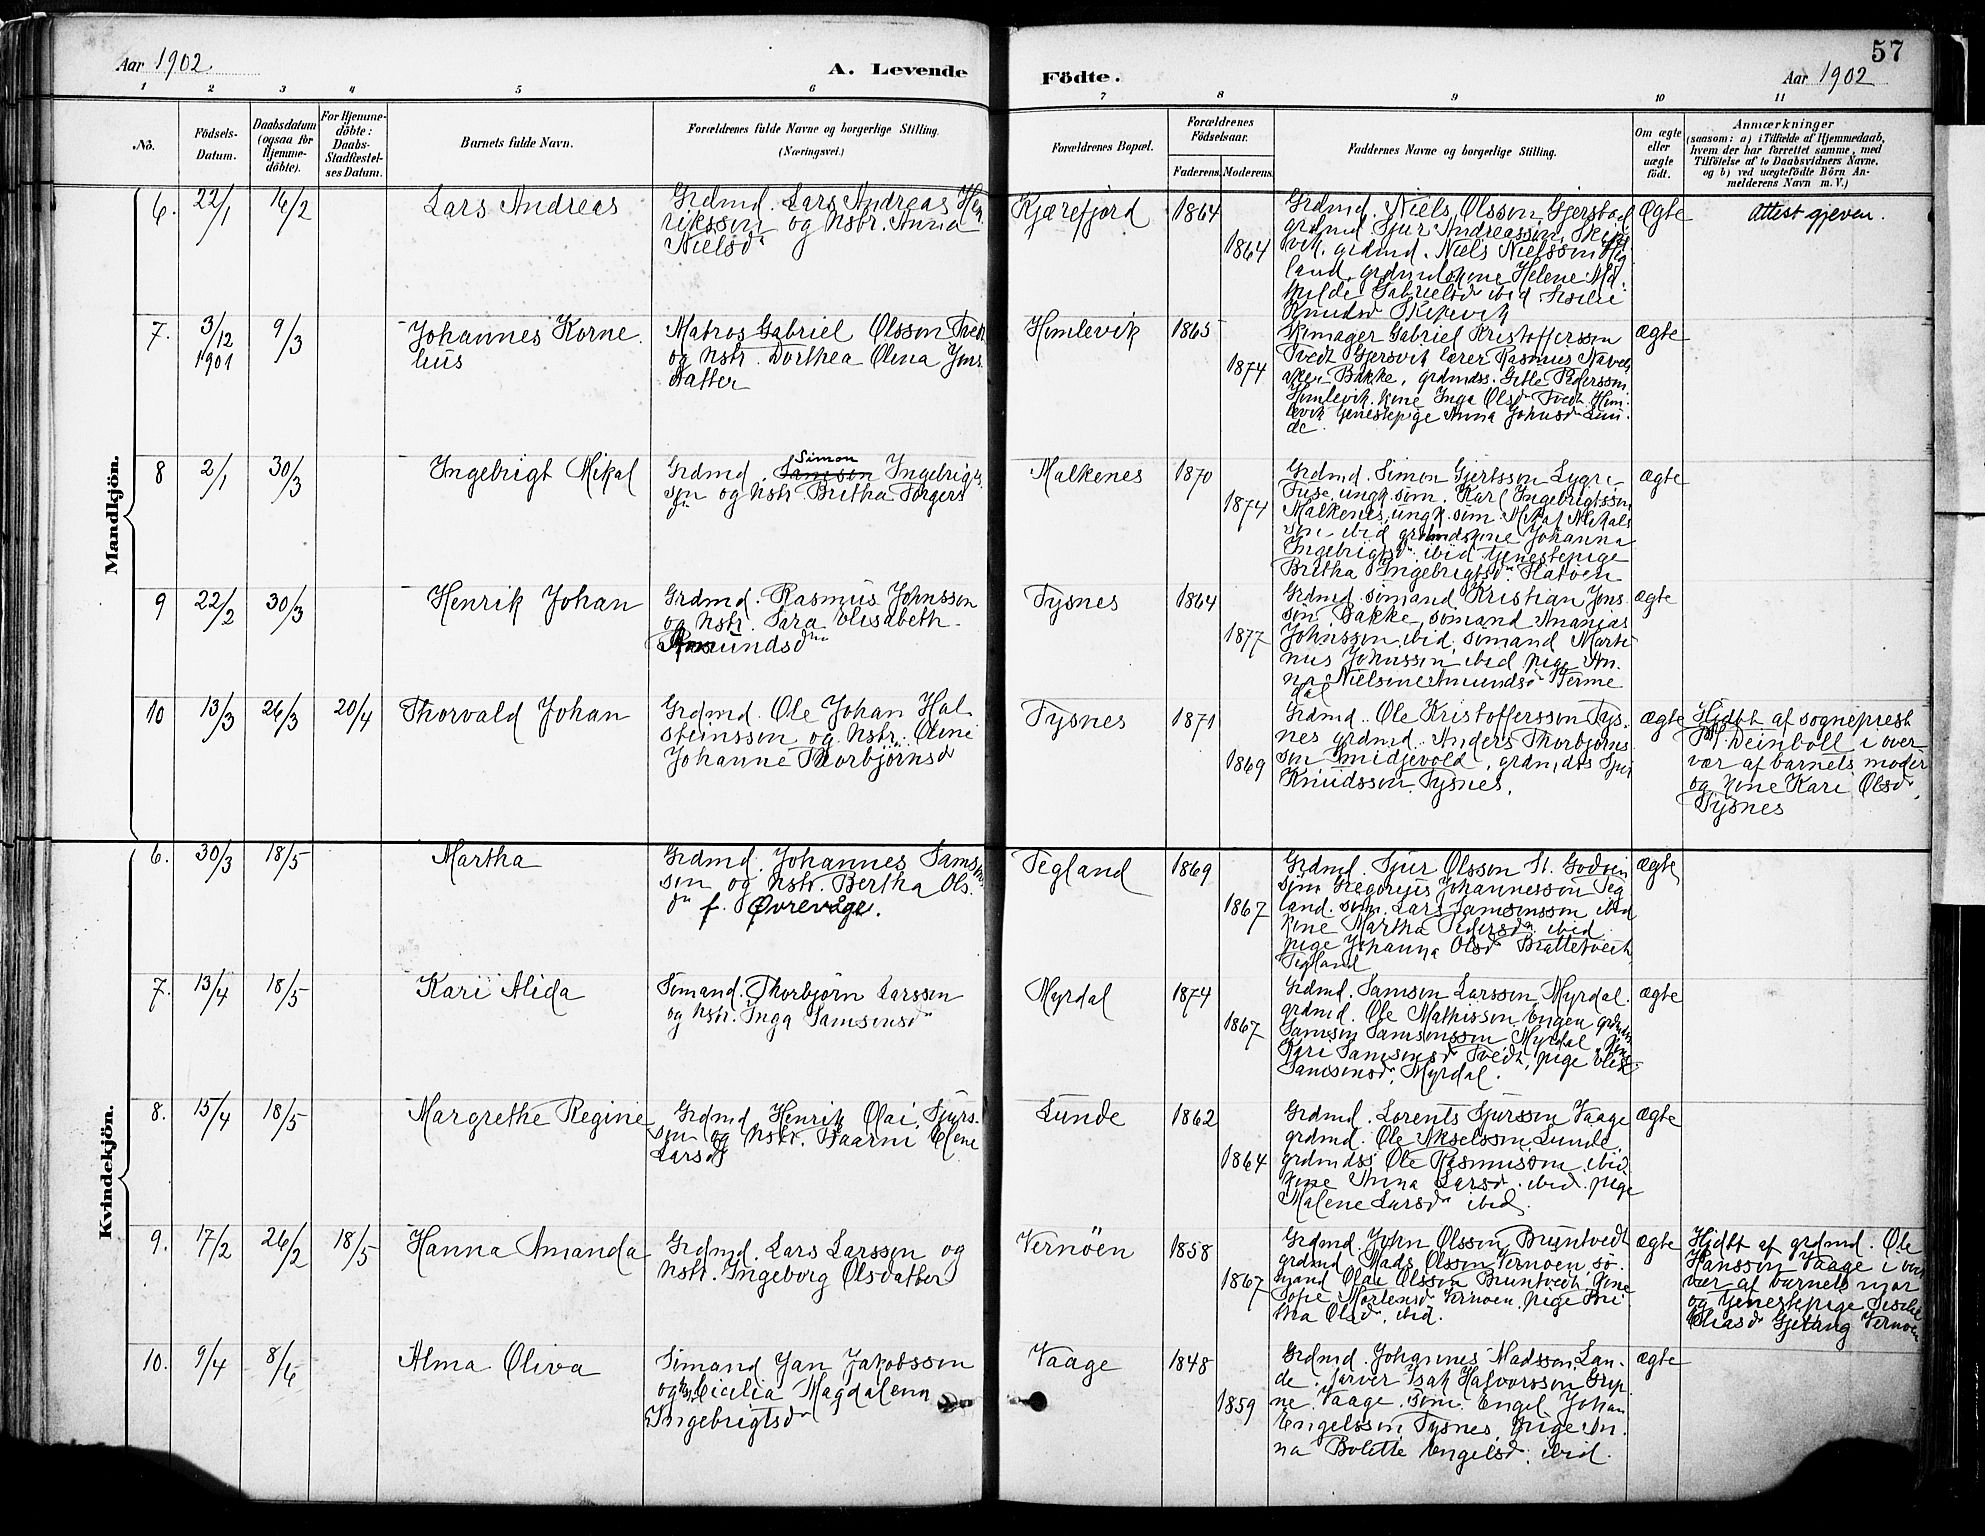 57
Aar 1902
A. Levende Födte.
Aar 1902
1 2 3 4 5 6 7 8 9 10 11
No.
Födsels-
Datum.
Daabsdatum
(ogsaa för
Hjemme-
döbte).
For Hjemme-
döbte:
Daabs-
Stadfæstel-
ses Datum.
Barnets fulde Navn.
Forældrenes fulde Navne og borgerlige Stilling.
(Næringsvei.)
Forældrenes Bopæl.
Forældrenes
Födselsaar.
Faderens. Moderens.
Faddernes Navne og borgerlige Stilling.
Om ægte
eller
uægte
födt.
Anmærkninger
(saasom: a) i Tilfælde af Hjemmedaab,
hvem der har forrettet samme, med
Tilföielse af to Daabsvidners Navne,
og b) ved uægtefödte Börn An-
melderens Navn m. V.)
Mandkjön.
6. 22/1 16/2
Lars Andreas
Grdmd. Lars Andreas Hen
riksson og hstr. Anna
Nielsdr
Kjærefjord
1864
1864
Grdmd. Niels Olsson Gjerstad
grdmd Sjur Andreasson, Skjel
vik, grdmd. Niels Nielsson
land, grdmdskone Helene Ma
thilde Gabrielsdr ibid
Knudsdr Skjelvik
Ægte
Attest gjeven.
7. 3/12 1901 9/3
Johannes Korne
lius
Matros Gabriel Olsson Tvedt
og hstr. Dorthea Olina Jens
datter
Hemlevik
1865
1874
Skomager Gabriel Kristoffersson
Tvedt Gjersvik lærer Rasmus
Bakke, grdmds. Gitle Pedersson
Hemlevik, kone Inga Olsdr Tvedt Hem
levik tjenestepige Anna Johnsdr Lun
de.
ægte
8 2/1 30/3
Ingebrigt Mikal
Simon
Grdmd. Samson Ingebrigts
søn og hstr Britha Torgers
dr
Malkenes
1870
1874
Grdmd. Simon Gjertsson Lygre
Fuse, ungk. søm. Karl Ingebrigtsson
Malkenes, ungk. søm Mikal Mikals
son ibid grdmdskone Johanna
Ingebrigtsdr ibid tjenestepige
Britha Ingebrigtsdr Flatøen
ægte
9 22/2 30/3
Henrik Johan
Grdmd. Rasmus Johnsson
og hstr. Sara Elisabeth
Amundsdr
Tysnes
1864
1877
Grdmd. sømand Kristian Jons
søn Bakke, sømand Ananias
Johnsson ibid, sømand Marti
nus Johnsson ibid pige An.
na Nielsine Amundsdr Teme
dal
ægte
10 13/3 26/3 20/4
Thorvald Johan
Grdmd. Ole Johan Hal
steinsson og hstr. Oline
Johanne Thorbjörnsdr
Tysnes
1871
1869
Grdmd. Ole Kristoffersson Tys.
nes grdmd. Anders Thorbjørns
søn Smidjevold, grdmds Sjur
Knudsson Tysnes.
ægte
Hjdbt af sogneprest
Deinboll i over
vær af barnets moder
og kone Kari Olsdr,
Tysnes
Kvindekjön.
6. 30/3 18/5
Martha
Grdmd. Johannes Sams
søn og hstr. Bertha Ols.
dr f. Øvrevåge.
Tegland
1869
1867
Grdmd. Sjur Olsson St. Godvin
søm Gregorius Johannesson Teg
land. søm. Lars Samsonsson ibid
kone Martha Pedersdr ibid
pige Johanna Olsdr Brattetveit
Tegland
ægte
7. 13/4 18/5
Kari Alida
Sömand. Thorbjørn Larsson
og hstr. Inga Samsonsdr
Myrdal
1874
1867
Grdmd. Samson Larsson Myrdal.
grdmd. Ole Mathisson Engen grdmds
Samson Samsonsson Myrdal, kone
Kari Samsonsdr Tvedt, pige Elise
Samsonsdr, Myrdal.
ægte
8. 15/4 18/5
Margrethe Regine
Grdmd. Henrik Olai Sjurs-
søn og hstr. Elene
Larsdr
Lunde
1862
1864
Grdmd. Lorents Sjursson Vaage
grdmd. Ole Akselsson Lunde
grdmdss Ole Rasmusson ibid
kone Anna Larsdr ibid pige
Malene Larsdr ibid.
ægte
9. 17/2 26/2 18/5
Hanna Amanda
Grdmd. Lars Larsson og
hstr. Ingeborg Olsdatter
Vernöen
1858
1867
Grdmd. John Olsson Bruntvedt
grdmd Mads Olsson Vernøen, sø-
mand Olai Olsson Bruntvedt kone
Sofie Mortensdr Vernøen, pige Bri
tha Olsdr, ibid.
ægte
Hjdbt af grdmd. Ole
Hansson Vaage i over
vær af barnets mor
og tjenestepige
Eliasdr Vernøen
10. 9/4 8/6
Alma Oliva
Sömand Jan Jakobsson
og hstr Cicilia Magdalena
Ingebrigtsdr
Vaage
1848
1859
Grdmd. Johannes Madsson Lan-
de. farver Isak Halvorsson Grip
ne, Vaage, søm. Engel Johan
Engelsson Tysnes, pige An.
na Bolette Engelsdr. ibid.
ægte